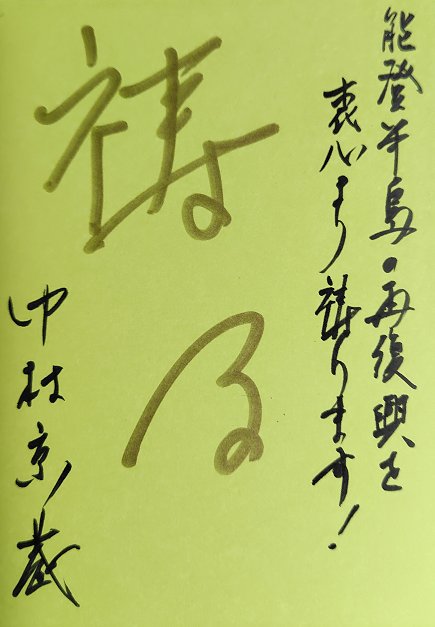 能登半島の再復興を
衷心より祷ります!
祷る
中村京蔵